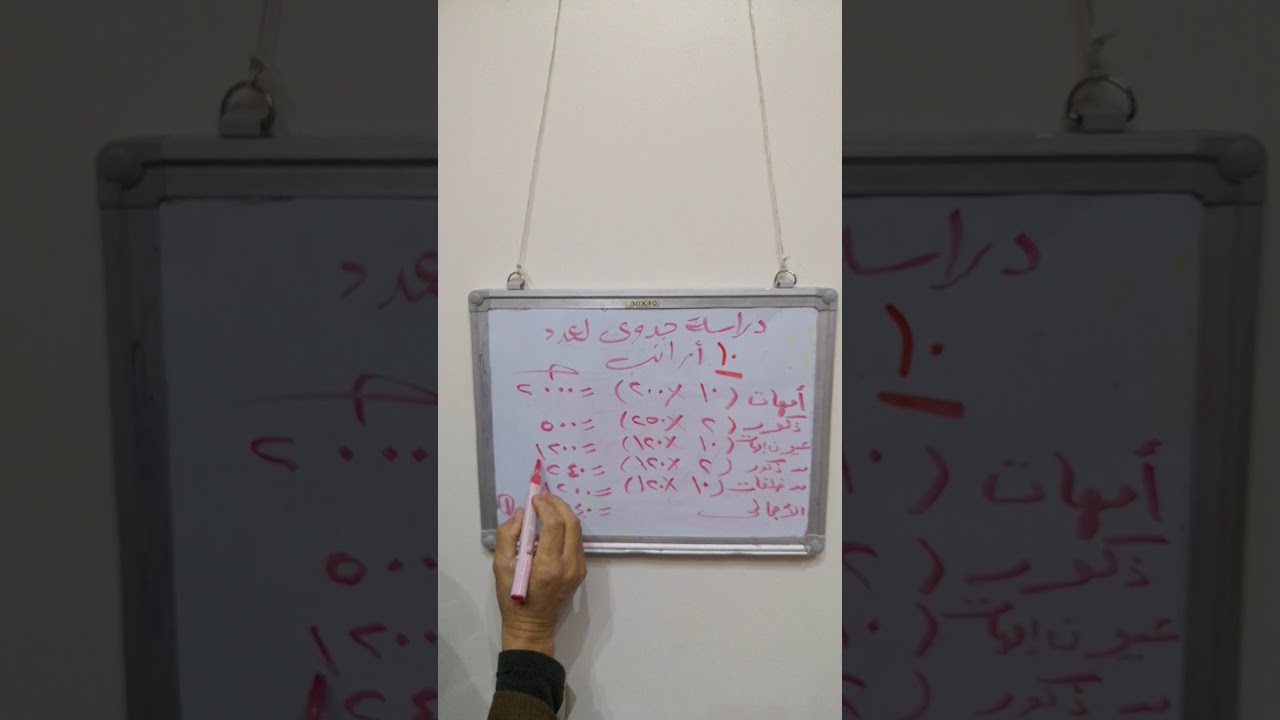 30X40
دراسة جدوى لعدد
١٠ أرانب
أمهات (١٠ X ٢٠٠) = ٢٠٠٠
ذكور (٢ X ٢٥٠) = ٥٠٠
عيون إناث (١٠ X ١٢٠) = ١٢٠٠
〃 ذكور (٢ X ١٢٠) = ٢٤٠
〃 خلفات (١٠ X ١٢٠) = ١٢٠٠
الأجمالى =